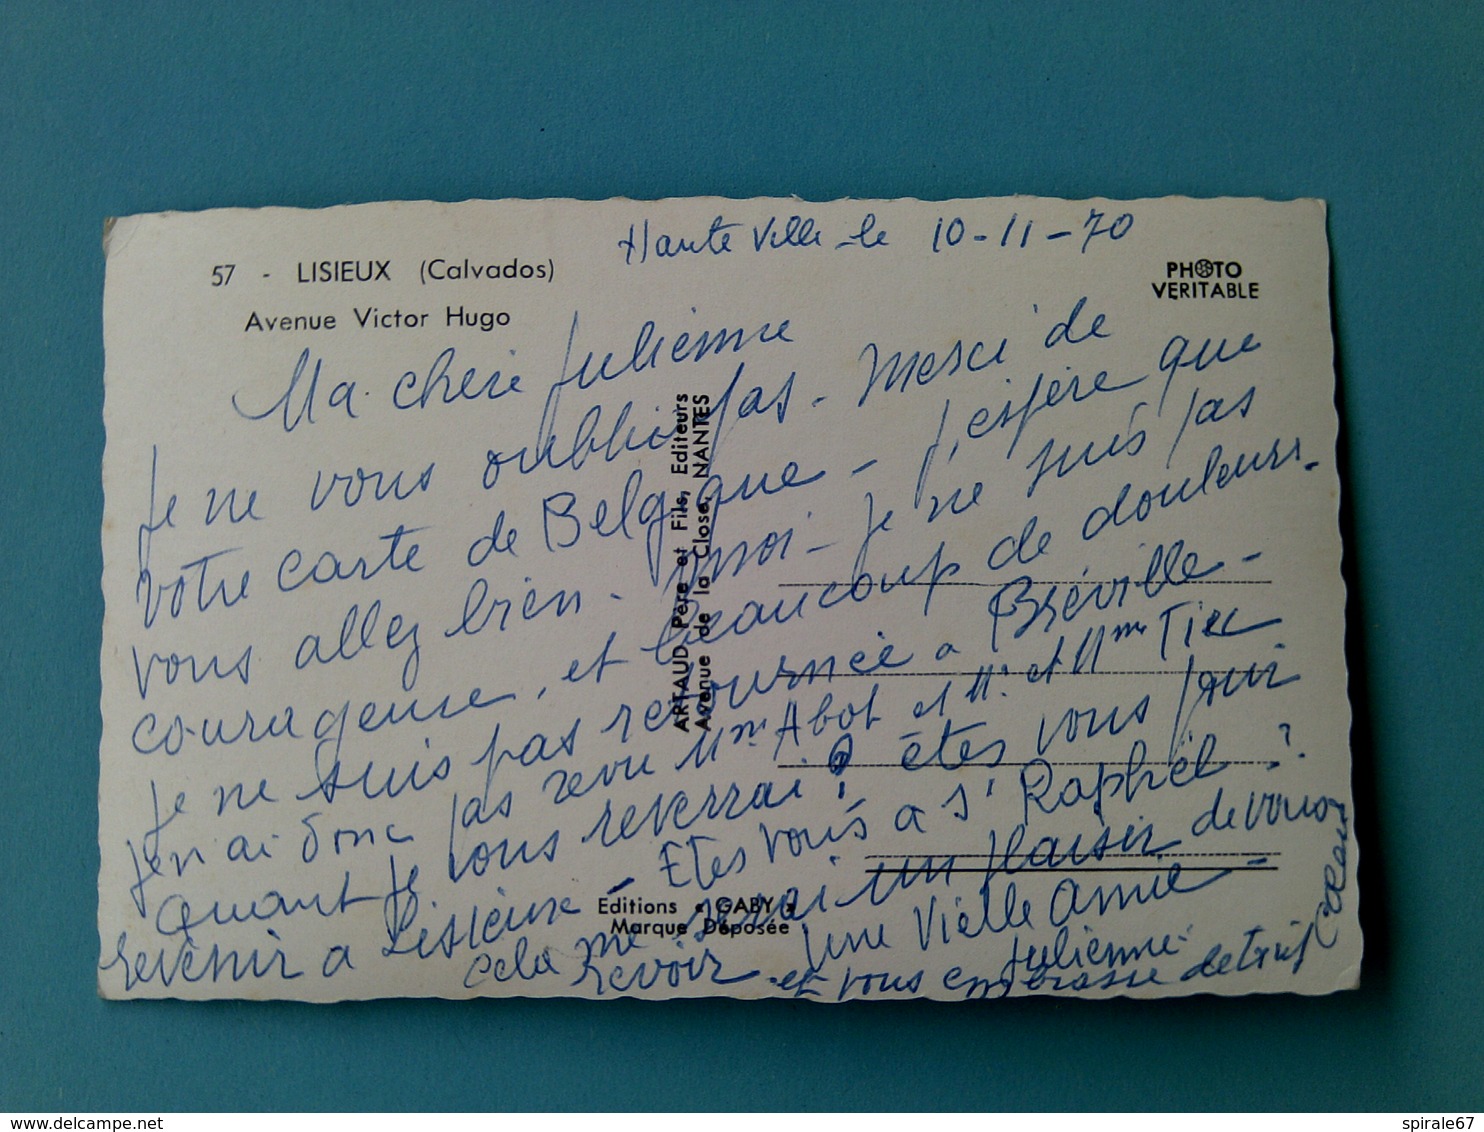 Haute Ville - le 10-11-70
57 - LISIEUX (Calvados)
Avenue Victor Hugo
PHOTO
VERITABLE
Ma chère Julienne
Je ne vous oublie pas - Merci de
votre carte de Belgique - J'espère que
vous allez bien - moi - Je ne suis pas
courageuse, et beaucoup de douleurs.
Je ne suis pas retournée a Bréville -
J'en ai donc pas revu Mme Abot et Mr. et Mme Tiec
Quant Je vous reverrai? êtes vous pour
revenir a Lisieux - Etes vous a St Raphël?
cela me serai un plaisir de vous
revoir Une Vielle Amie -
Julienne
et vous embrasse de tout Cœur
ARTAUD Père et Fils, Editeurs
Avenue de la Close, NANTES
Editions « GABY »
Marque Déposée
spirale67
www.delcampe.net